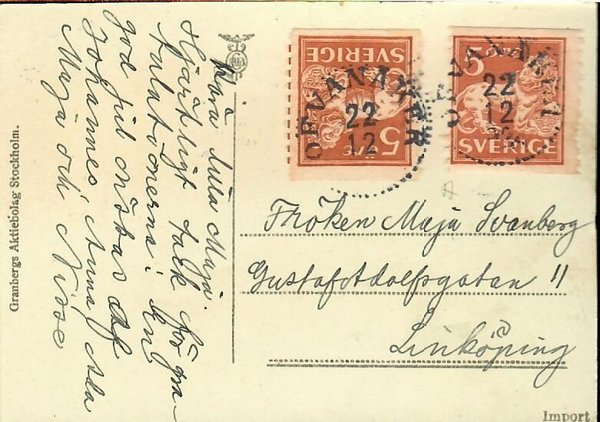 Kära lilla Maja.
Hjärtligt tack för gra-
tulationerna! En
god jul önskas af
Johannes, Anna, Ada
Maja och Nisse
Granbergs Aktiebolag Stockholm.
SVERIGE
5
22
12
SVERIGE
5
22
12
Fröken Maja Svanberg
Gustaf Adolfsgatan 11
Linköping
Import